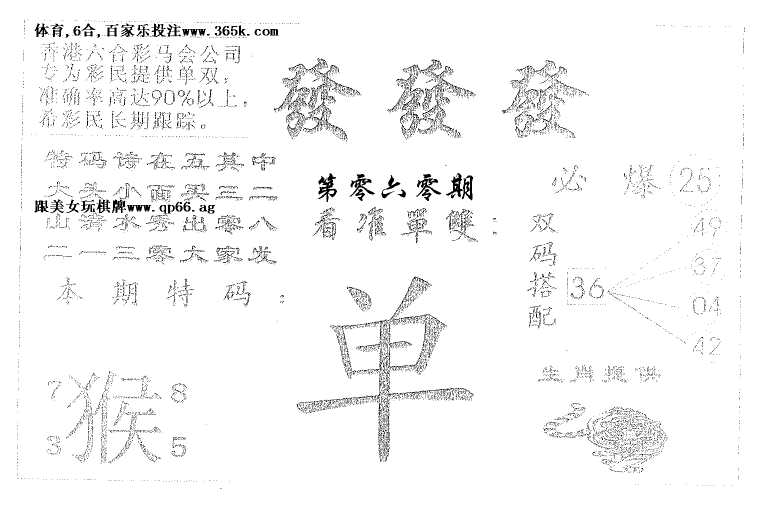 体育,6合,百家乐投注www.365k.com
香港六合彩马会公司
专为彩民提供单双,
准确率高达90%以上,
希彩民长期跟踪。
發發發
特码诗在五其中
大头小面买三二
跟美女玩棋牌www.qp66.ag
山清水秀出零八
二一三零六家发
本期特码:
7 猴 8
3 5
第零六零期
看准單雙:
单
必爆 25
双码搭配
36
49
37
04
42
生肖提供